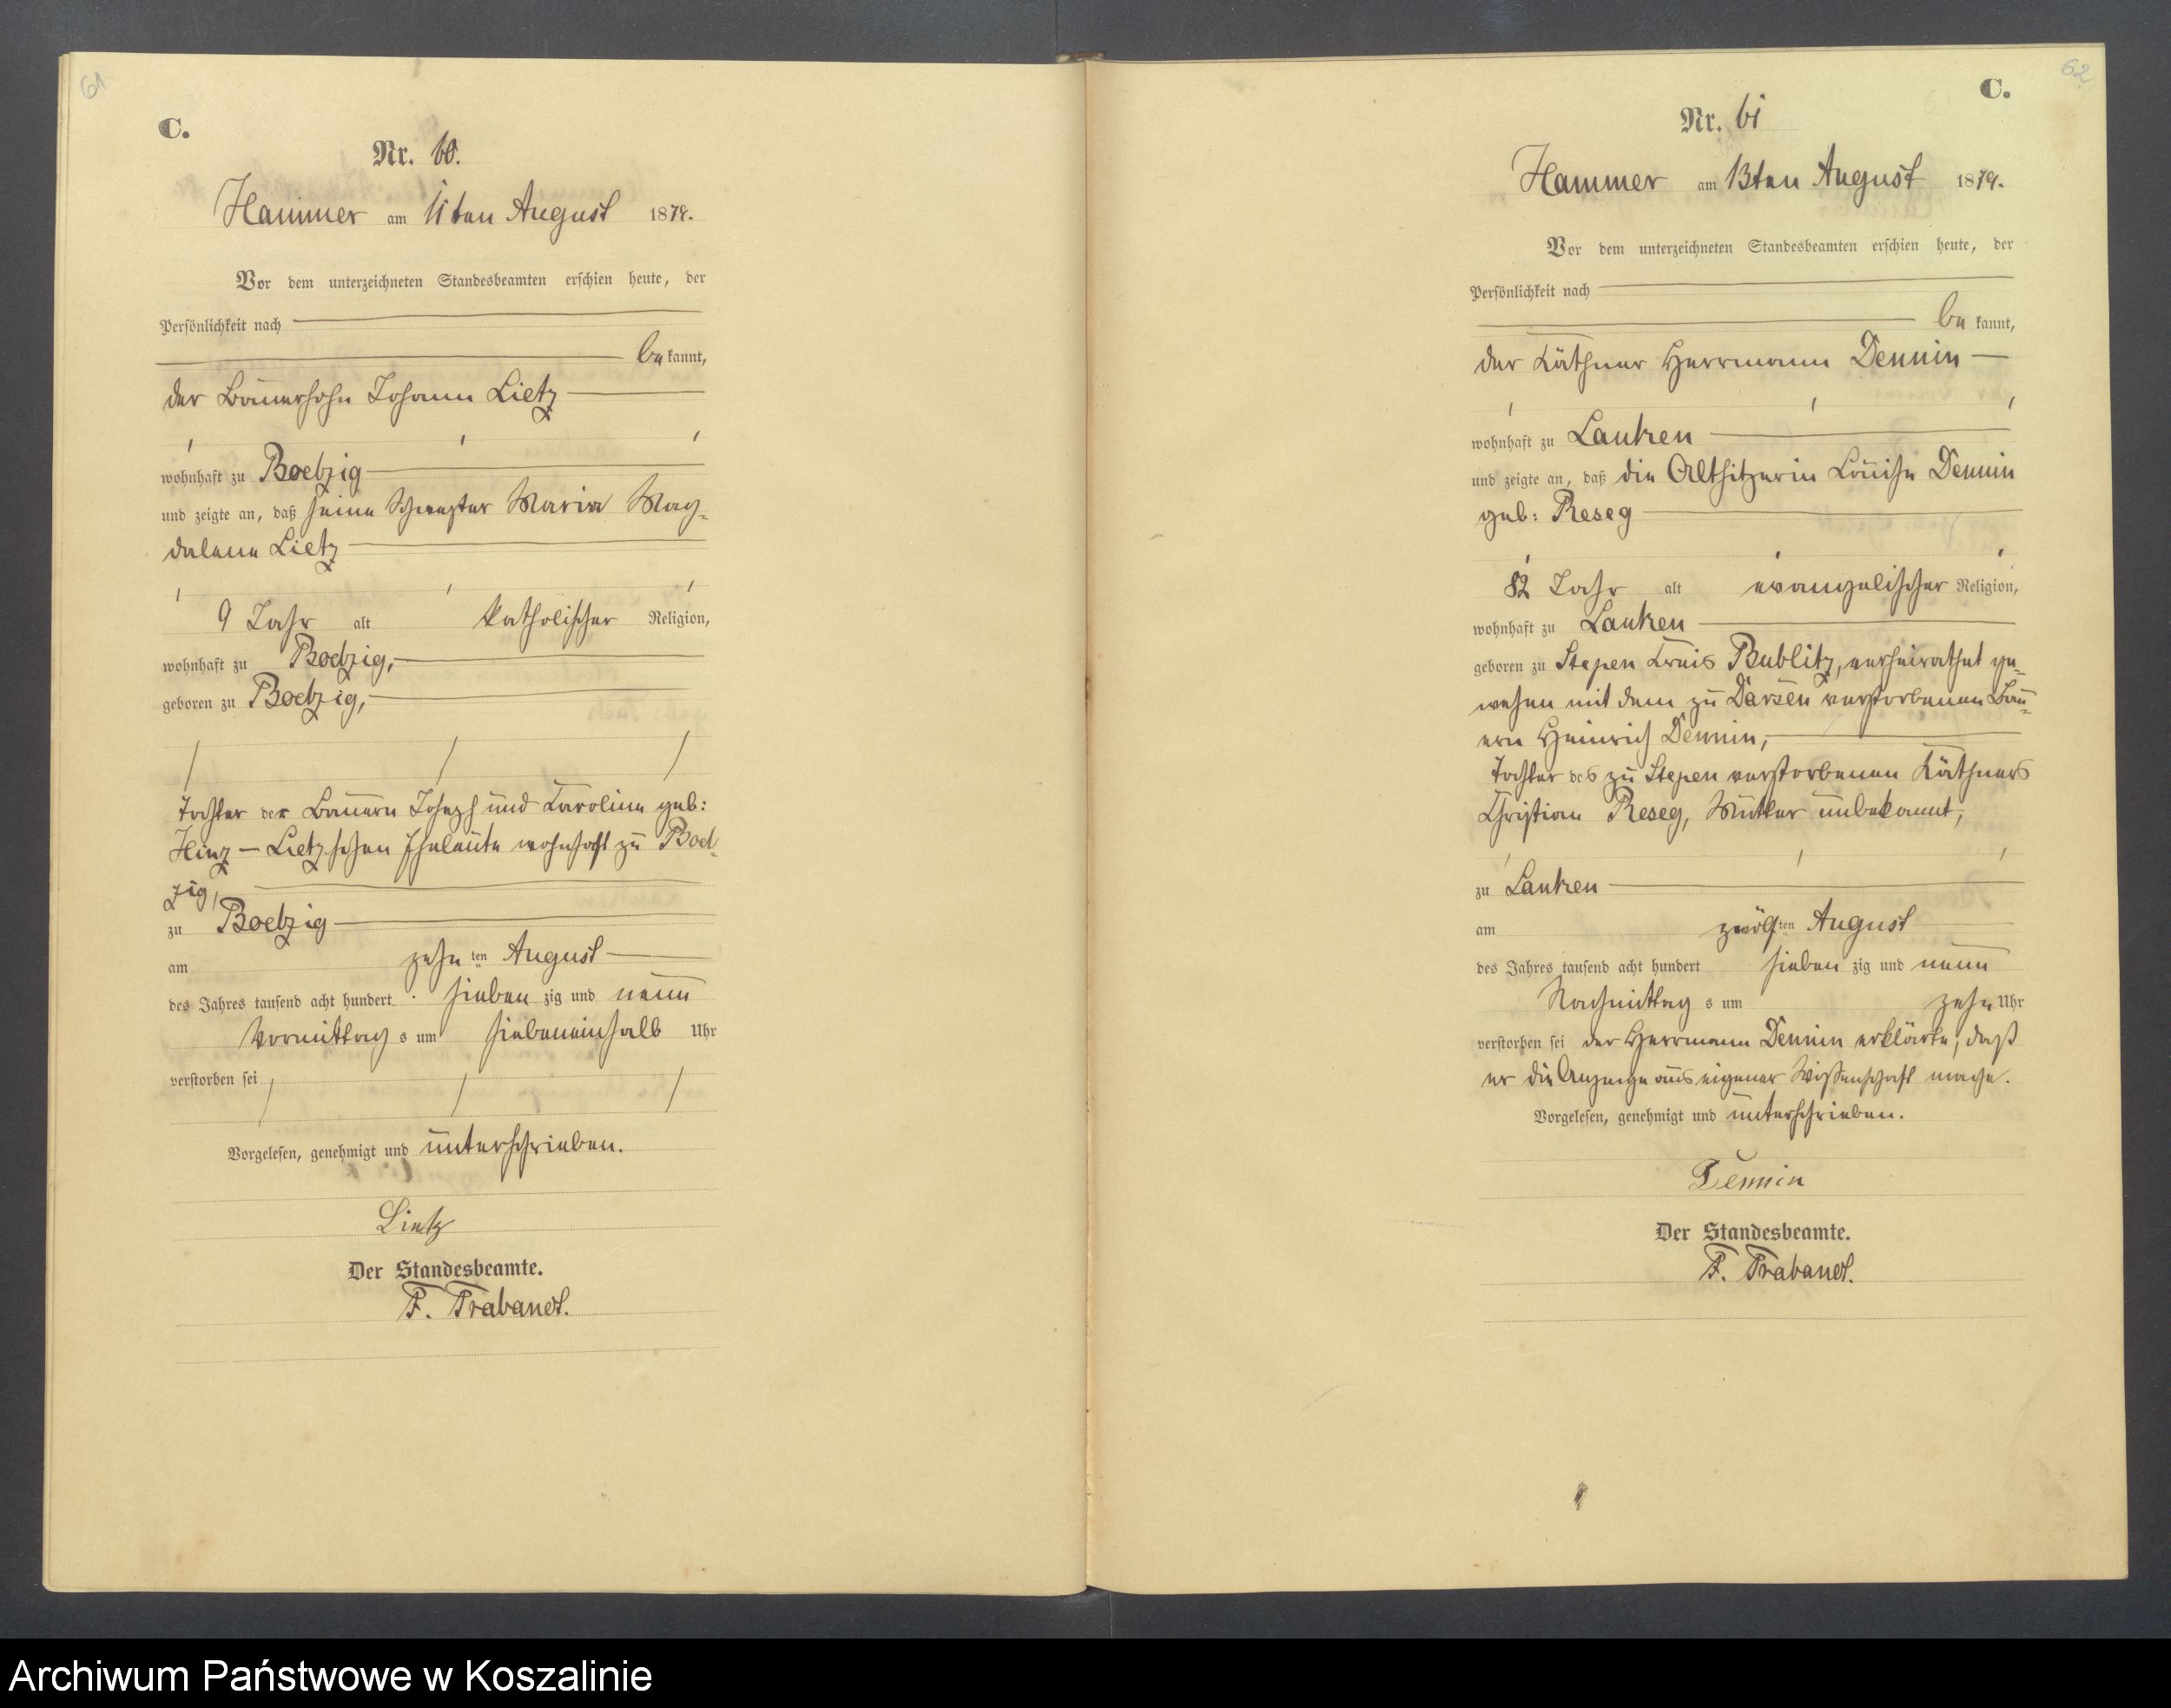 61
C.
Nr. 60.
Hammer am 11ten August 1879.
Vor dem unterzeichneten Standesbeamten erschien heute, der
Persönlichkeit nach
be kannt,
der Bauersohn Johann Lietz
wohnhaft zu Boetzig
und zeigte an, daß seine Schwester Maria Mag-
dalene Lietz
9 Jahr alt katholischer Religion,
wohnhaft zu Boetzig,
geboren zu Boetzig,
Tochter der Bauern Joseph und Karoline geb:
Hinz – Lietzschen Eheleute wohnhaft zu Boet-
zig,
zu Boetzig
am zehn ten August
des Jahres tausend acht hundert sieben zig und neun
Vormittag s um siebeneinhalb Uhr
verstorben sei
Vorgelesen, genehmigt und unterschrieben.
Lietz
Der Standesbeamte.
F. Trabandt.
62
C.
Nr. 61
Hammer am 13ten August 1879.
Vor dem unterzeichneten Standesbeamten erschien heute, der
Persönlichkeit nach
be kannt,
der Käthner Herrmann Demin
wohnhaft zu Lanken
und zeigte an, daß die Altsitzerin Louise Demin
geb: Reseg
82 Jahr alt evangelischer Religion,
wohnhaft zu Lanken
geboren zu Stepen Kreis Bublitz, verheirathet ge-
wesen mit dem zu Darsen verstorbenen Bau-
ern Heinrich Demin,
Tochter des zu Stepen verstorbenen Käthners
Christian Reseg, Mutter unbekannt,
zu Lanken
am zwölf ten August
des Jahres tausend acht hundert sieben zig und neun
Nachmittag s um zehn Uhr
verstorben sei der Herrmann Demin erklärte, daß
er die Anzeige aus eigener Wissenschaft mache.
Vorgelesen, genehmigt und unterschrieben.
Demin
Der Standesbeamte.
F. Trabandt.
Archiwum Państwowe w Koszalinie